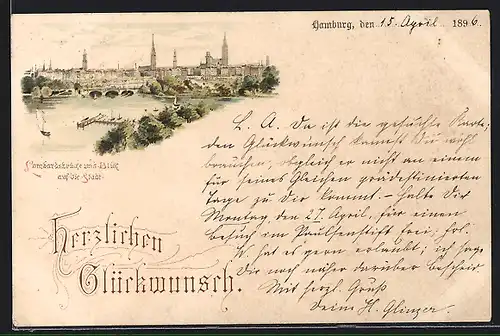 Hamburg, den 15. April 1896.
Lombardsbrücke mit Blick
auf die Stadt.
Herzlichen
Glückwunsch.
L. A. Da ist die gesuchte Karte;
den Glückwunsch kannst Du wohl
brauchen, obgleich er nicht an einem
für seines Gleichen prädestinirten
Tage zu Dir kommt. – Halte Dir
Montag, den 27. April, für einen
Besuch im Paulsenstift frei; Frl.
W. hat es gern erlaubt; ich sage
Dir noch näher darüber bescheid.
Mit herzl. Gruß
Deine H. Glinzer.